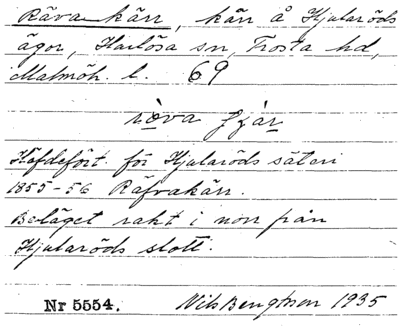 Räva kärr, kärr å Hjularöds
ägor, Harlösa sn, Frosta hd,
Malmöh. l. 69
röva çär
Häfdefört för Hjularöds säteri
1855-56 Räfvakärr.
Beläget rakt i norr från
Hjularöds slott.
Nr 5554. Nils Bengtsson 1935